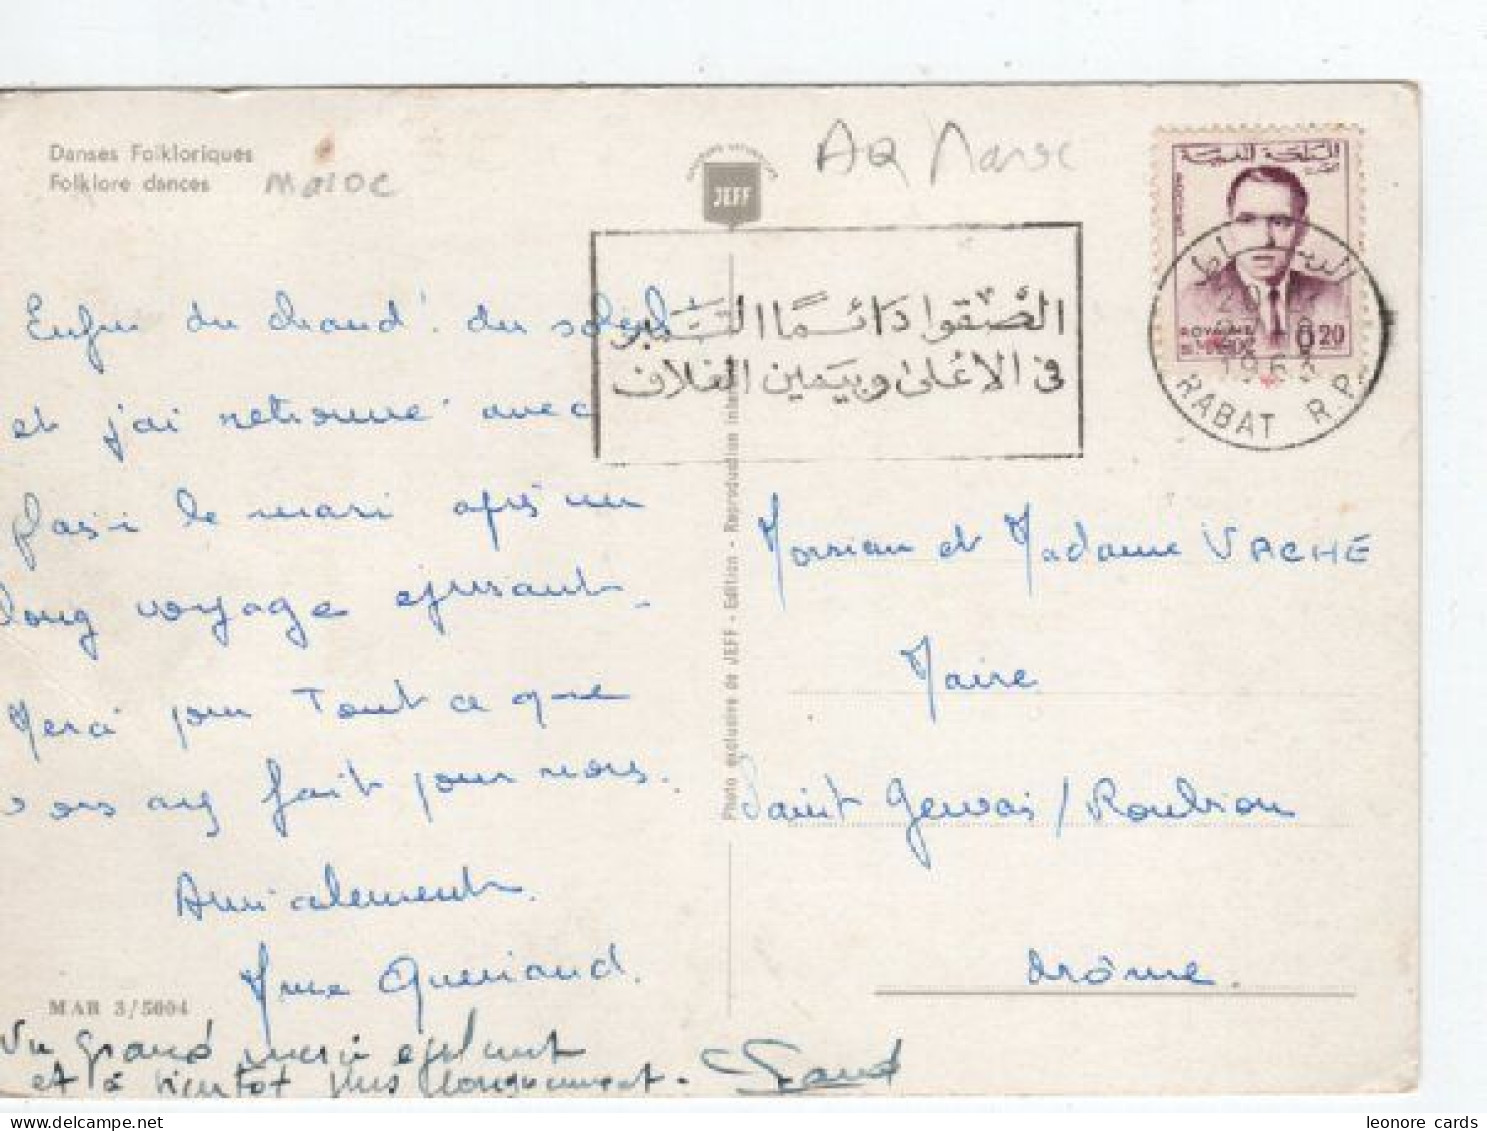 Danses Folkloriques
Folklore dances
Maroc
AQ Maroc
COULEURS NATURELLES
JEFF
المملكة المغربية
ROYAUME
DU MAROC
0,20
الرباط
1963
RABAT R.P.
الصقوا دائما التنبر
في الاعلى وبيمين الغلاف
Enfin du chaud! du soleil
et j'ai retrouvé avec
plaisir le mari après un
long voyage épuisant.
Merci pour tout ce que
vous avez fait pour nous.
Amicalement.
Mme Queriaud.
MAR 3/5004
Un grand merci également
et à bientôt plus longuement.
Photo exclusive de JEFF - Edition - Reproduction Inter
Monsieur et Madame VACHE
Maire
Saint Gervais / Roubion
Drôme.
leonore cards